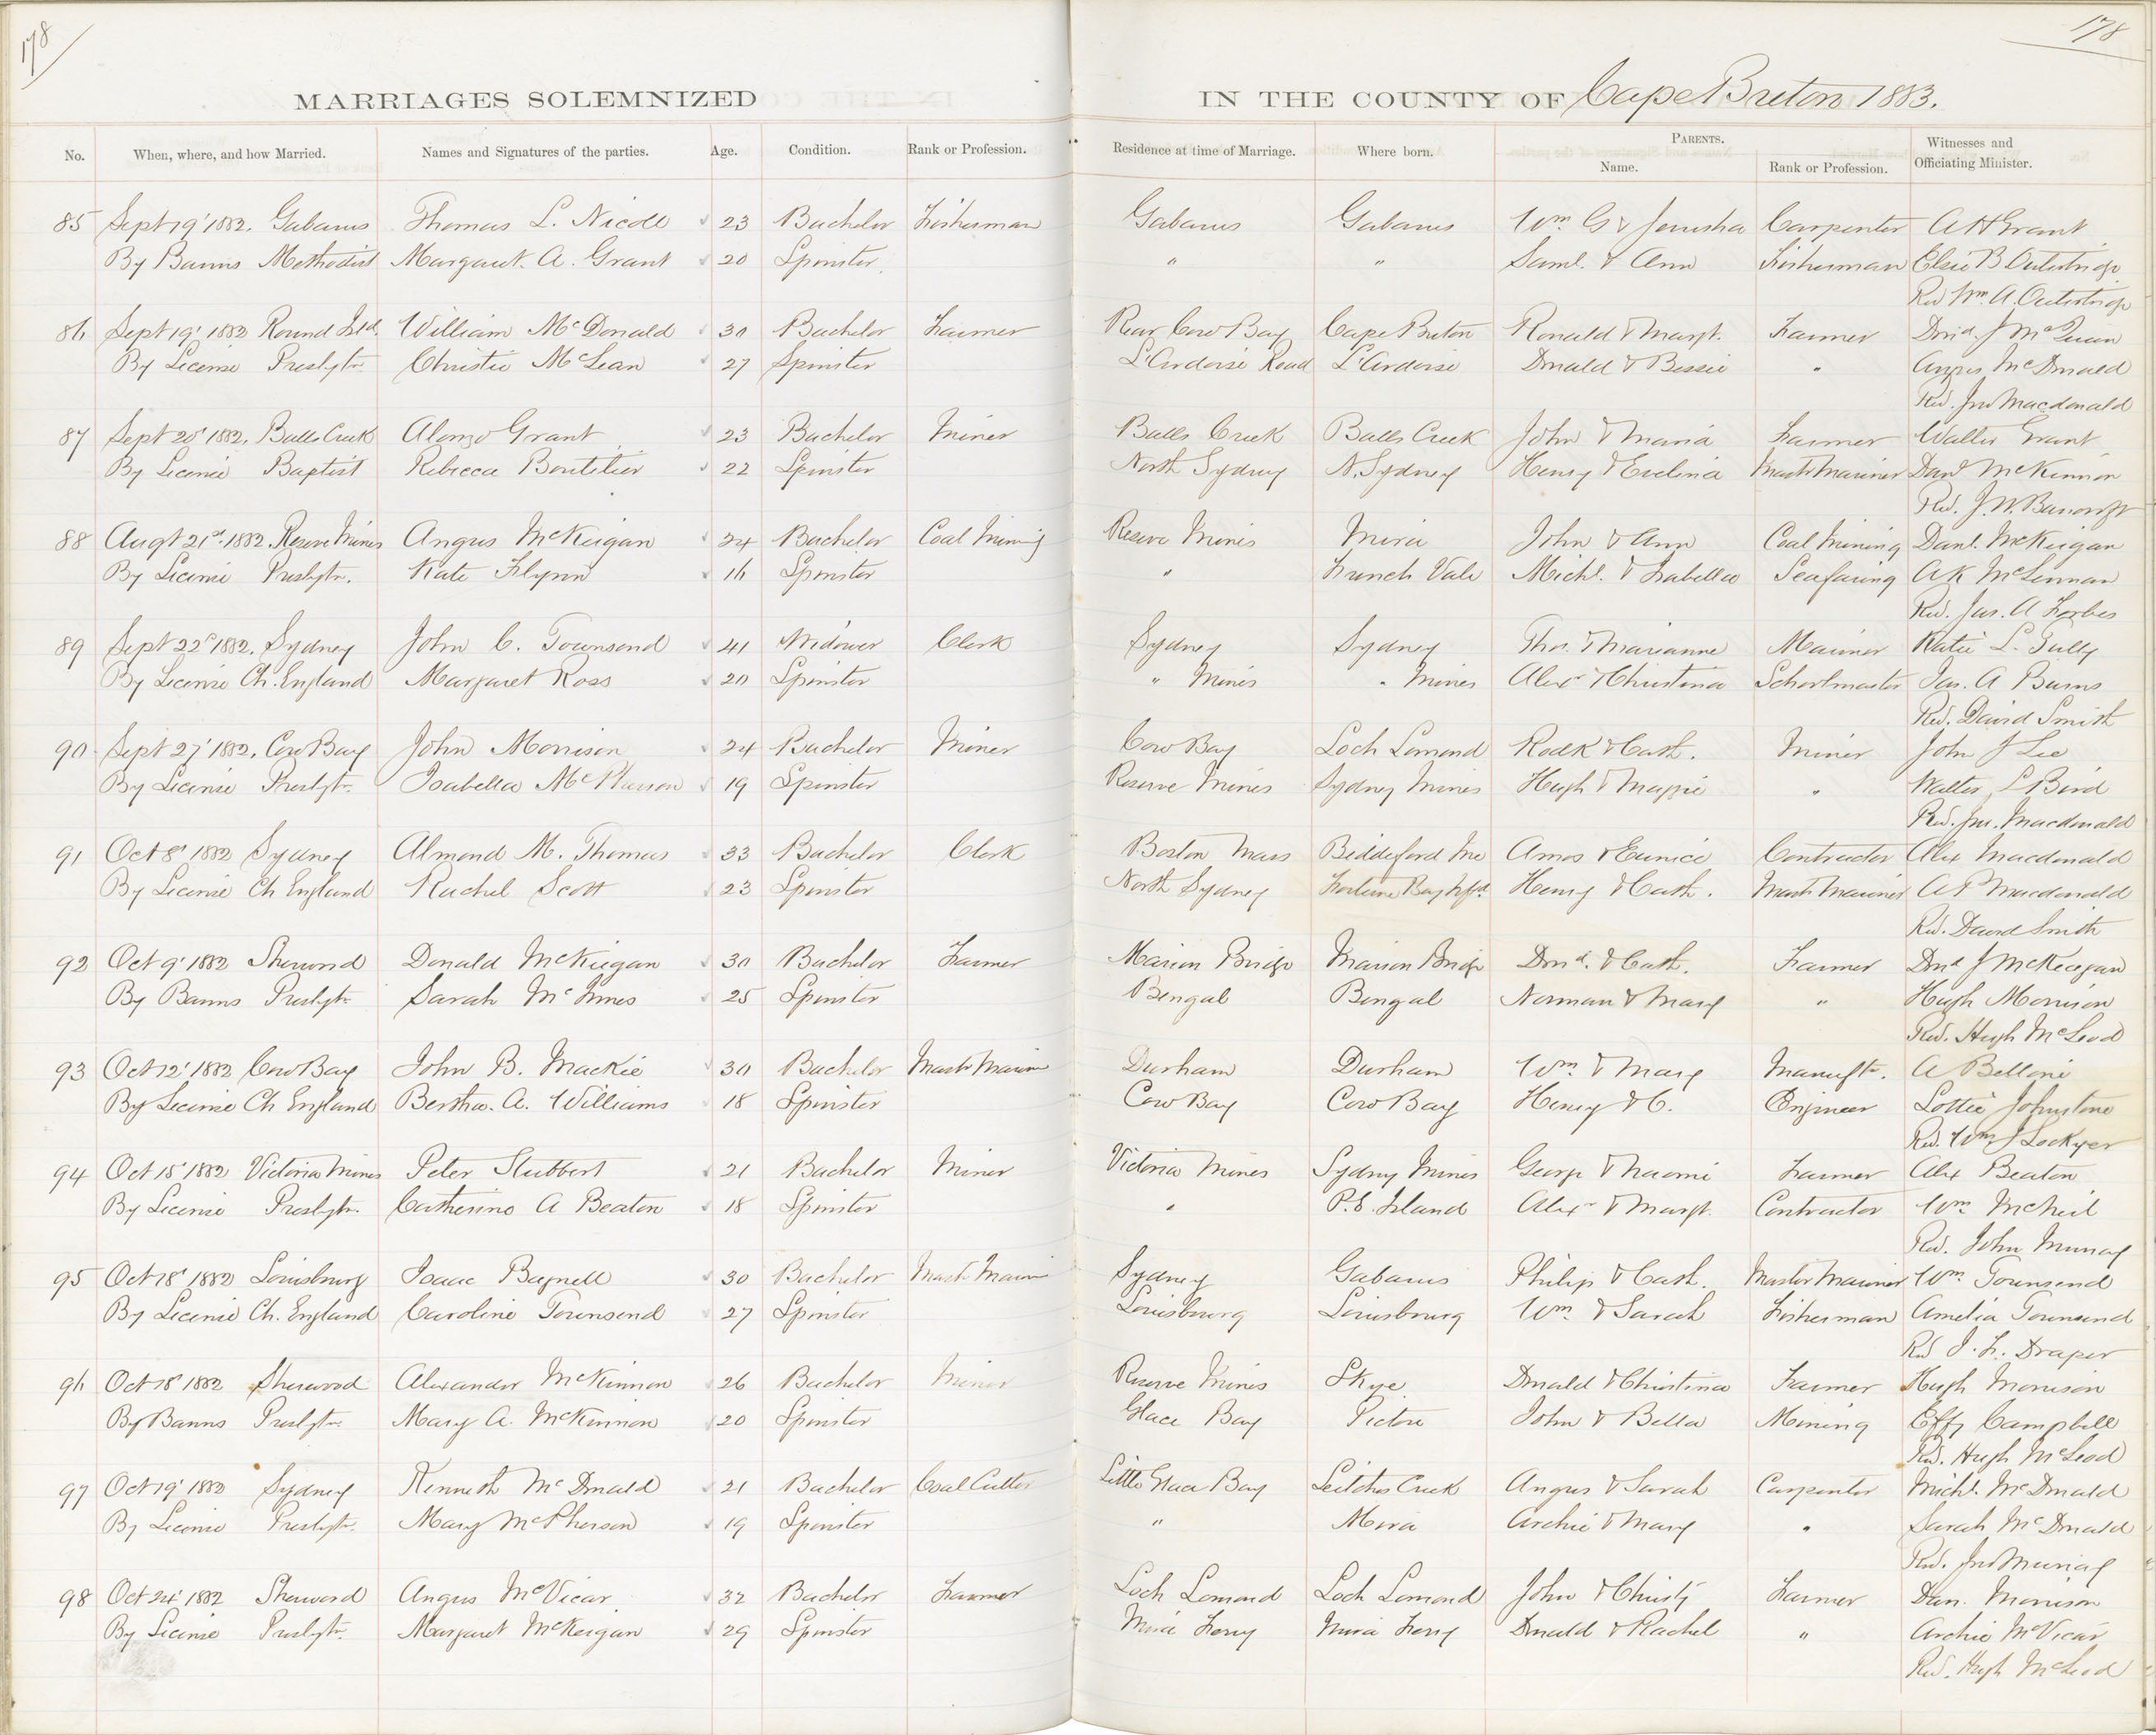 178
178
MARRIAGES SOLEMNIZED IN THE COUNTY OF Cape Breton 1883.
No. When, where, and how Married. Names and Signatures of the parties. Age. Condition. Rank or Profession. Residence at time of Marriage. Where born. PARENTS. Name. Rank or Profession. Witnesses and Officiating Minister.
85 Sept 19' 1882. Gabarus Thomas L. Nicoll 23 Bachelor Fisherman Gabarus Gabarus Wm. G & Jerusha Carpenter A H Grant
By Banns Methodist Margaret. A. Grant 20 Spinster " " Saml. & Ann Fisherman Elsie B Outerbridge
Rev Wm. A. Outerbridge
86 Sept 19' 1882 Round Isld. William McDonald 30 Bachelor Farmer Rear Cow Bay Cape Breton Ronald & Margt. Farmer Dond. J McQueen
By License Presbytn Christie McLean 27 Spinster L'Ardoise Road L'Ardoise Donald & Bessie " Angus McDonald
Rev. Jno Macdonald
87 Sept 20' 1882. Balls Creek Alonzo Grant 23 Bachelor Miner Balls Creek Balls Creek John & Maria Farmer Walter Grant
By License Baptist Rebecca Boutelier 22 Spinster North Sydney N. Sydney Henry & Evelina Mastr Mariner Dand McKinnon
Rev. J. W. Bancroft
88 Augt 21st. 1882. Reserve Mines Angus McKeigan 24 Bachelor Coal Mining Reserve Mines Mira John & Ann Coal Mining Danl. McKeigan
By License Presbytn. Kate Flynn 16 Spinster " French Vale Michl. & Isabella Seafaring A K McLennan
Rev. Jas. A Forbes
89 Sept 22d 1882. Sydney John C. Townsend 41 Widower Clerk Sydney Sydney Thos. & Marianne Mariner Katie L. Gully
By License Ch. England Margaret Ross 20 Spinster " Mines " Mines Alexr & Christina Schoolmaster Jas. A Burns
Rev. David Smith
90 Sept 27' 1882. Cow Bay John Morrison 24 Bachelor Miner Cow Bay Loch Lomond Rodk & Cath. Miner John J Lee
By License Presbytn. Isabella McPherson 19 Spinster Reserve Mines Sydney Mines Hugh & Maggie " Walter L Bird
Rev. Jno. Macdonald
91 Oct 8' 1882 Sydney Almond M. Thomas 33 Bachelor Clerk Boston Mass Biddeford Me Amos & Eunice Contractor Alex Macdonald
By License Ch England Rachel Scott 23 Spinster North Sydney Fortune Bay Nfd. Henry & Cath. Mastr Mariner A P Macdonald
Rev. David Smith
92 Oct 9' 1882 Sherwood Donald McKeigan 30 Bachelor Farmer Marion Bridge Marion Bridge Dond. & Cath. Farmer Dond J McKeegan
By Banns Presbytn Sarah McInnes 25 Spinster Bengal Bengal Norman & Mary " Hugh Morrison
Rev. Hugh McLeod
93 Oct 12' 1882 Cow Bay John B. Mackie 30 Bachelor Mastr Marinr Durham Durham Wm. & Mary Manuftr. A Belloni
By License Ch England Bertha. A. Williams 18 Spinster Cow Bay Cow Bay Henry & C. Engineer Lottie Johnstone
Rev. Wm J Lockyer
94 Oct 15' 1882 Victoria Mines Peter Stubbert 21 Bachelor Miner Victoria Mines Sydney Mines George & Naomi Farmer Alex Beaton
By License Presbytn. Catherine A Beaton 18 Spinster " P. E. Island Alexr & Margt. Contractor Wm. McNeil
Rev. John Murray
95 Oct 18' 1882 Louisburg Isaac Bagnell 30 Bachelor Mastr Marinr Sydney Gabarus Philip & Cath. Master Mariner Wm. Townsend
By License Ch. England Caroline Townsend 27 Spinster Louisbourg Louisbourg Wm. & Sarah Fisherman Amelia Townsend
Rev T. F. Draper
96 Oct 18' 1882 Sherwood Alexander McKinnon 26 Bachelor Miner Reserve Mines Skye Donald & Christina Farmer Hugh Morrison
By Banns Presbytn. Mary A. McKinnon 20 Spinster Glace Bay Pictou John & Bella Mining Effy Campbell
Rev. Hugh McLeod
97 Oct 19' 1882 Sydney Kenneth McDonald 21 Bachelor Coal Cutter Little Glace Bay Leitches Creek Angus & Sarah Carpenter Michl. McDonald
By License Presbytn. Mary McPherson 19 Spinster " Mira Archie & Mary " Sarah McDonald
Rev. Jno Murray
98 Oct 24' 1882 Sherwood Angus McVicar 32 Bachelor Farmer Loch Lomond Loch Lomond John & Christy Farmer Dan. Morrison
By License Presbytn. Margaret McKeigan 29 Spinster Mira Ferry Mira Ferry Donald & Rachel " Archie McVicar
Rev. Hugh McLeod